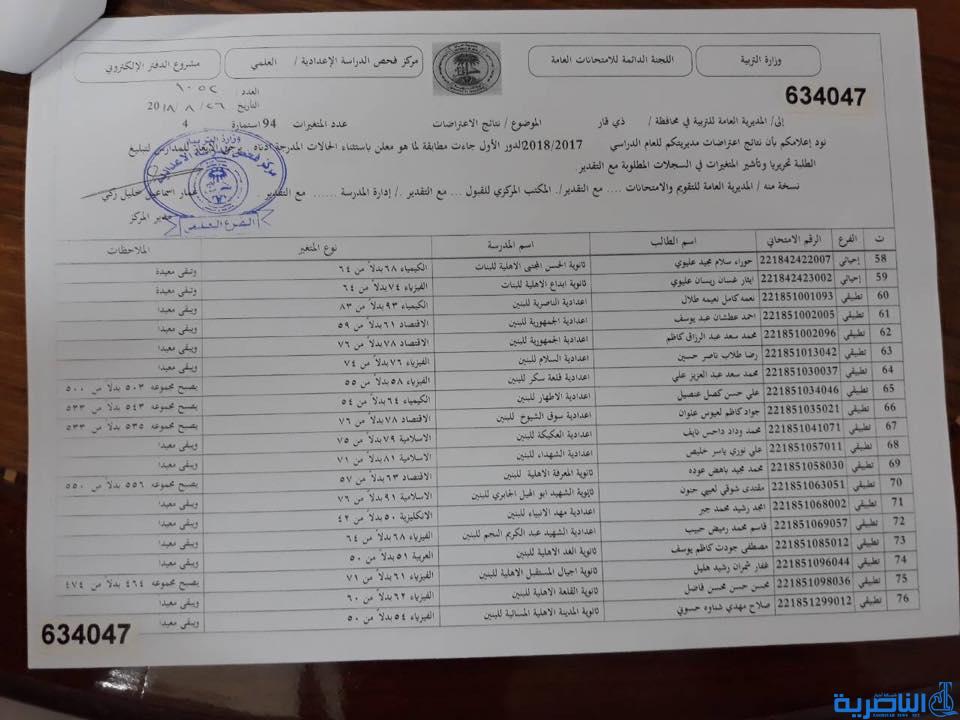 وزارة التربية
اللجنة الدائمة للامتحانات العامة
مركز فحص الدراسة الإعدادية / العلمي
مشروع الدفتر الإلكتروني
634047
العدد : ١٠٥٢
التاريخ ٢٦ / ٨ / 2018
إلى/ المديرية العامة للتربية في محافظة / ذي قار الموضوع / نتائج الاعتراضات عدد المتغيرات 94 استمارة 4
نود إعلامكم بأن نتائج اعتراضات مديريتكم للعام الدراسي 2018/2017 لدور الأول جاءت مطابقة لما هو معلن باستثناء الحالات المدرجة ادناه يرجى الايعاز للمدارس لتبليغ
الطلبة تحريريا وتأشير المتغيرات في السجلات المطلوبة مع التقدير.
نسخة منه / المديرية العامة للتقويم والامتحانات .... مع التقدير/. المكتب المركزي للقبول ... مع التقدير ./ إدارة المدرسة ...... مع التقدير
عمار اسماعيل خليل زكي
مدير المركز
ت الفرع الرقم الامتحاني اسم الطالب اسم المدرسة نوع المتغير الملاحظات
58 إحيائي 221842422007 حوراء سلام مجيد عليوي ثانوية الحسن المجتبى الاهلية للبنات الكيمياء ٦٨ بدلاً من ٦٤ وتبقى معيدة
59 إحيائي 221842423002 ايثار غسان ريسان عليوي ثانوية ابداع الاهلية للبنات الفيزياء ٧٤ بدلاً من ٦٤ وتبقى معيدة
60 تطبيقي 221851001093 نعمه كامل نعيمه طلال اعدادية الناصرية للبنين الكيمياء ٩٣ بدلاً من ٨٣ ويبقى معيدا
61 تطبيقي 221851002005 احمد عطشان عبد يوسف اعدادية الجمهورية للبنين الاقتصاد ٦١ بدلاً من ٥٩ ويبقى معيدا
62 تطبيقي 221851002096 محمد سعد عبد الرزاق كاظم اعدادية الجمهورية للبنين الاقتصاد ٧٨ بدلاً من ٧٦ ويبقى معيدا
63 تطبيقي 221851013042 رضا طلاب ناصر حسين اعدادية السلام للبنين الفيزياء ٧٦ بدلاً من ٧٤ ويبقى معيدا
64 تطبيقي 221851030037 محمد سعد عبد العزيز علي اعدادية قلعة سكر للبنين الفيزياء ٥٨ بدلاً من ٥٥ يصبح مجموعه ٥٠٣ بدلاً من ٥٠٠
65 تطبيقي 221851034046 علي حسن كصل عنصيل اعدادية الاطهار للبنين الكيمياء ٦٤ بدلاً من ٥٤ يصبح مجموعه ٥٤٣ بدلاً من ٥٣٣
66 تطبيقي 221851035021 جواد كاظم لعيوس علوان اعدادية سوق الشيوخ للبنين الاقتصاد ٧٨ بدلاً من ٧٦ يصبح مجموعه ٥٣٥ بدلاً من ٥٣٣
67 تطبيقي 221851041071 محمد وداد داحس نايف اعدادية العكيكة للبنين الاسلامية ٧٩ بدلاً من ٧٥ ويبقى معيدا
68 تطبيقي 221851057011 علي نوري ياسر خليص اعدادية الشهداء للبنين الاسلامية ٨١ بدلاً من ٧١ ويبقى معيدا
69 تطبيقي 221851058030 محمد مجيد باهض عوده ثانوية المعرفة الاهلية للبنين الاقتصاد ٦٣ بدلاً من ٥٧ يصبح مجموعه ٥٥٦ بدلاً من ٥٥٠
70 تطبيقي 221851063051 مقتدى شوقي لعيبي حنون ثانوية الشهيد ابو الهيل الجابري للبنين الاسلامية ٩١ بدلاً من ٧٦ ويبقى معيدا
71 تطبيقي 221851068002 امجد رشيد محمد جبر اعدادية مهد الانبياء للبنين الانكليزية ٥٠ بدلاً من ٤٢ ويبقى معيدا
72 تطبيقي 221851069057 قاسم محمد رميض حبيب اعدادية الشهيد عبد الكريم النجم للبنين الفيزياء ٦٨ بدلاً من ٦٤ ويبقى معيدا
73 تطبيقي 221851085012 مصطفى جودت كاظم يوسف ثانوية الغد الاهلية للبنين العربية ٥١ بدلاً من ٥٠ ويبقى معيدا
74 تطبيقي 221851096044 غفار شمران رشيد هليل ثانوية اجيال المستقبل الاهلية للبنين الفيزياء ٦١ بدلاً من ٧١ يصبح مجموعه ٤٦٤ بدلاً من ٤٧٤
75 تطبيقي 221851098036 محسن حسن محسن فاضل ثانوية القلعة الاهلية للبنين الفيزياء ٦٢ بدلاً من ٦٠ ويبقى معيدا
76 تطبيقي 221851299012 صلاح مهدي شناوه حسوني ثانوية المدينة الاهلية المسائية للبنين الفيزياء ٥٤ بدلاً من ٥٠ ويبقى معيدا
634047
الناصرية